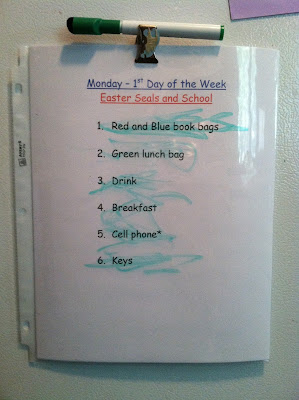 Monday – 1st Day of the Week
Easter Seals and School
1. Red and Blue book bags
2. Green lunch bag
3. Drink
4. Breakfast
5. Cell phone*
6. Keys